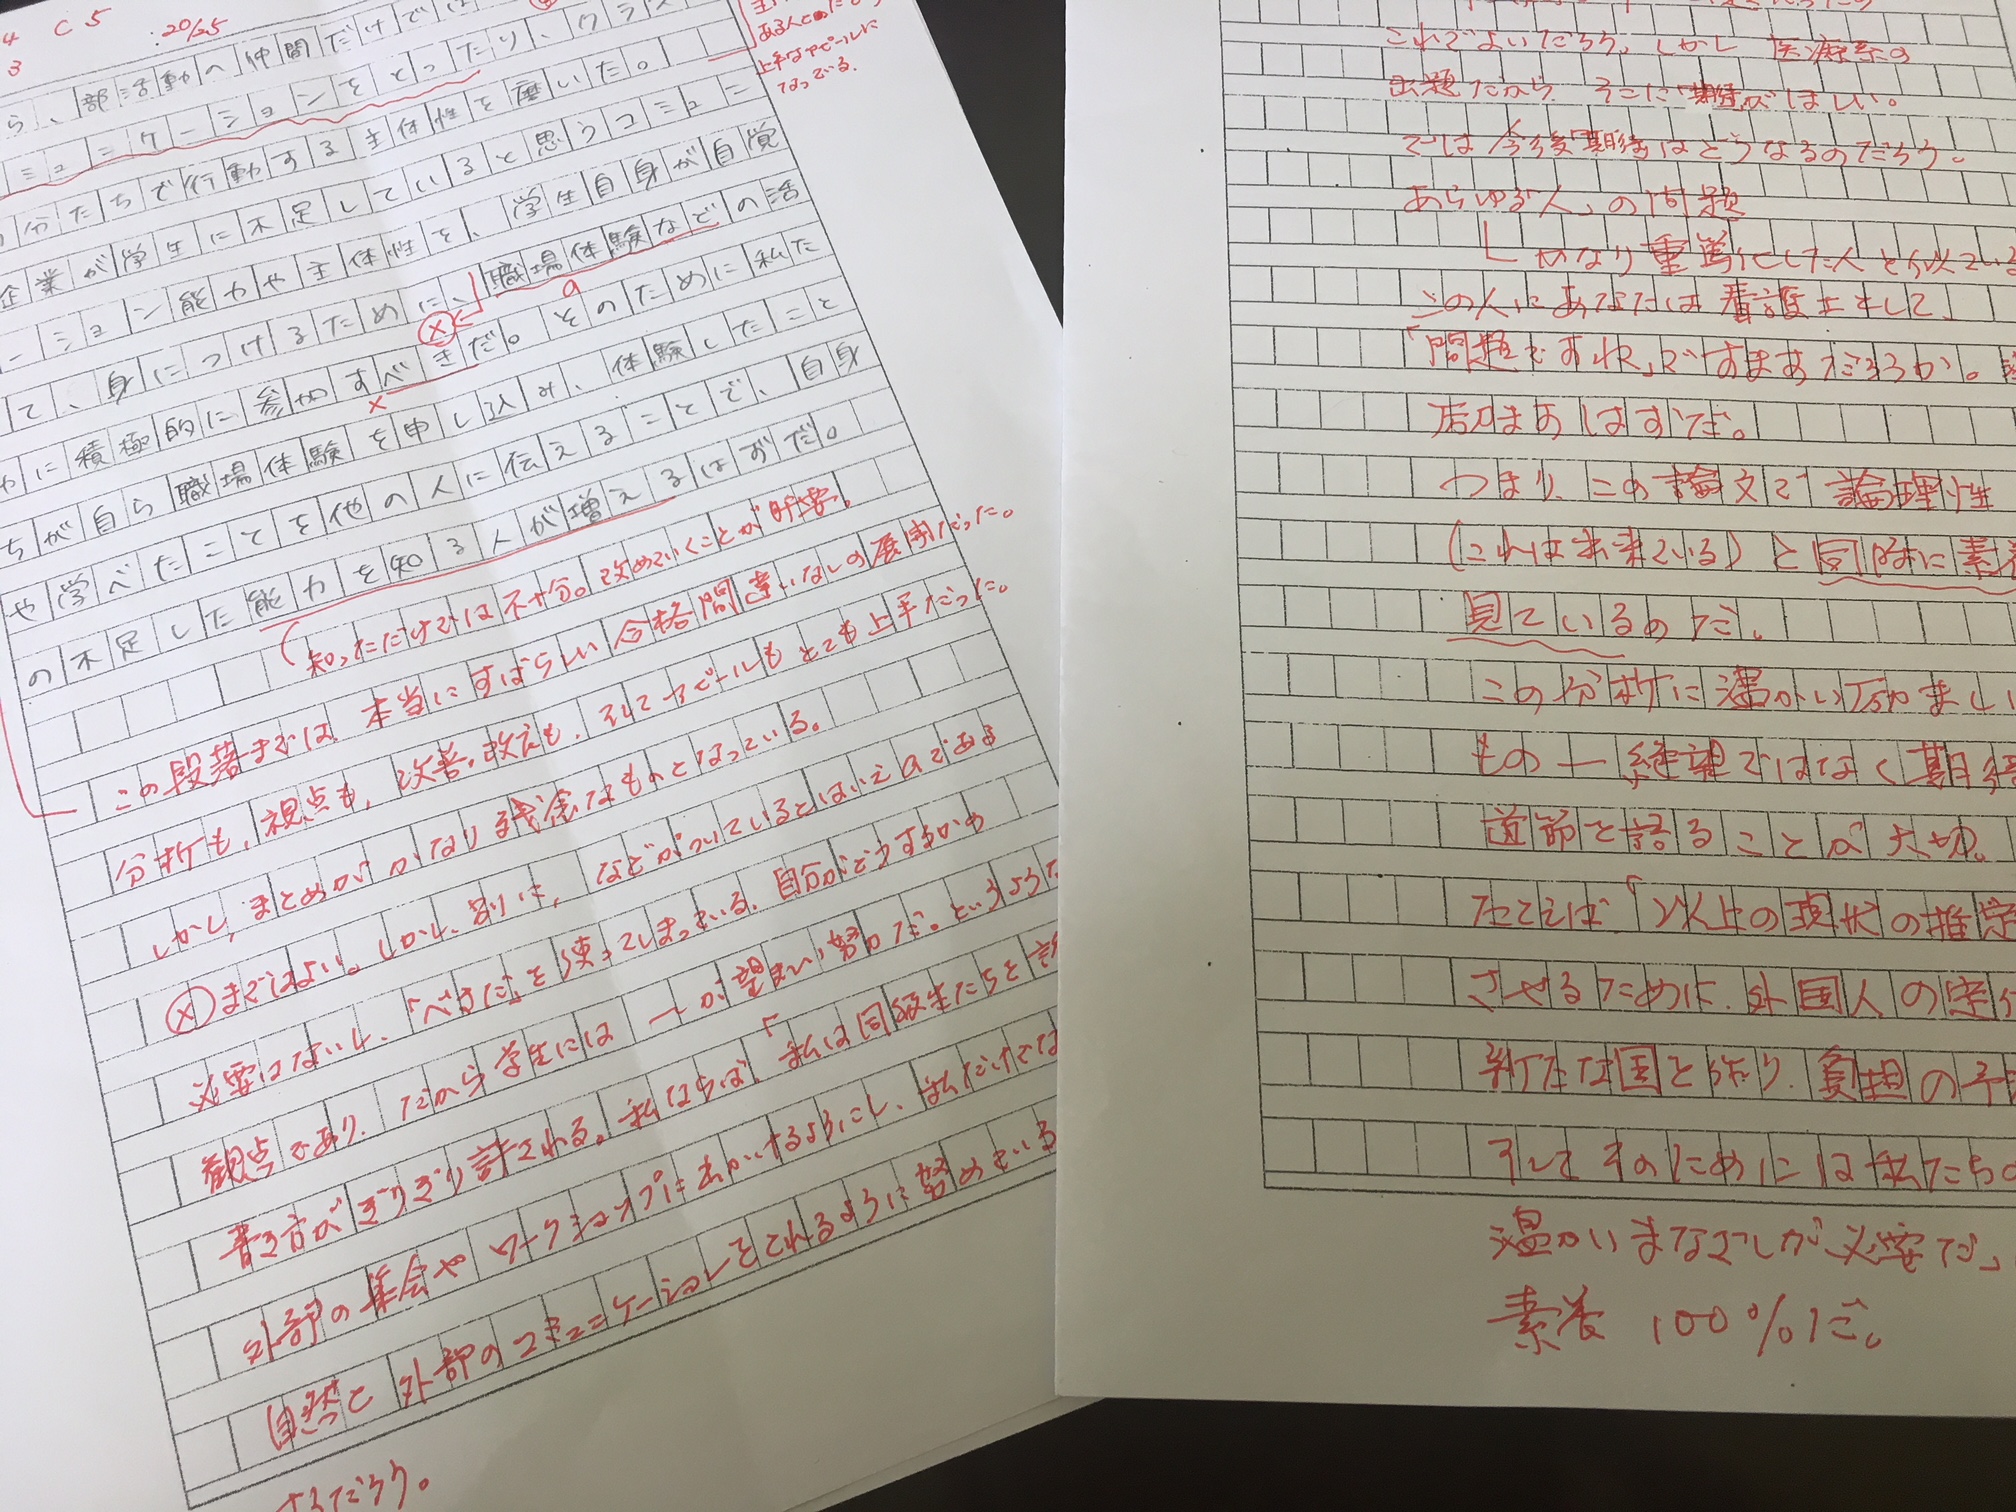 C5
20/25
4
3
ら、部活動の仲間だけで
ミュニケーションをとったり、クラス
分たちで行動する主体性を磨いた。
企業が学生に不足していると思うコミュニ
ーション能力や主体性を、学生自身が自覚
て、身につけるために、職場体験などの活
a
やに積極的に参加すべきだ。そのために私た
ちが自ら職場体験を申し込み、体験したこと
や学べたことを他の人に伝えることで、自身
の不足した能力を知る人が増えるはずだ。
ある人
上手なアピールに
なっている。
知っただけでは不十分。改めていくことが肝要。
この段落までは、本当にすばらしい合格間違いなしの展開だった。
分析も、視点も、改善・教えも、そしてアピールもとても上手だった。
しかし、まとめがかなり残念なものとなっている。
まではよい。しかし、別に、などがついているとはいえaである
必要はないし、「べきだ」を使ってしまっている。自分がどうするかの
観点であり、だから学生には ーが望ましい、努力だ。というような
書き方がぎりぎり許される。私ならば、「私は同級生たちと
外部の集会やワークショップに参加するようにし、私だけでな
自然と外部のコミュニケーションをとれるように努めている
するだろう。
これでよいだろう。しかし 医療系の
出題だから そこに「期待」がほしい。
では今後「期待」はどうなるのだろう。
あらゆる「人」の問題
かなり重篤化した人と似ている
この人にあなたは看護士として、
「問題ですね」ですますだろうか。
店はまあはずだ。
つまり、この論文で論理性
(これは出来ている)と同時に素養
見ているのだ。
この分析に温かい励ましい
もの ー 絶望ではなく期待
道筋を語ることが大切。
たとえば「以上の現状の推定
させるために、外国人の定住
新たな国を作り、負担の
そしてそのためには私たちの
温かいまなざしが必要だ」
素養100%だ。